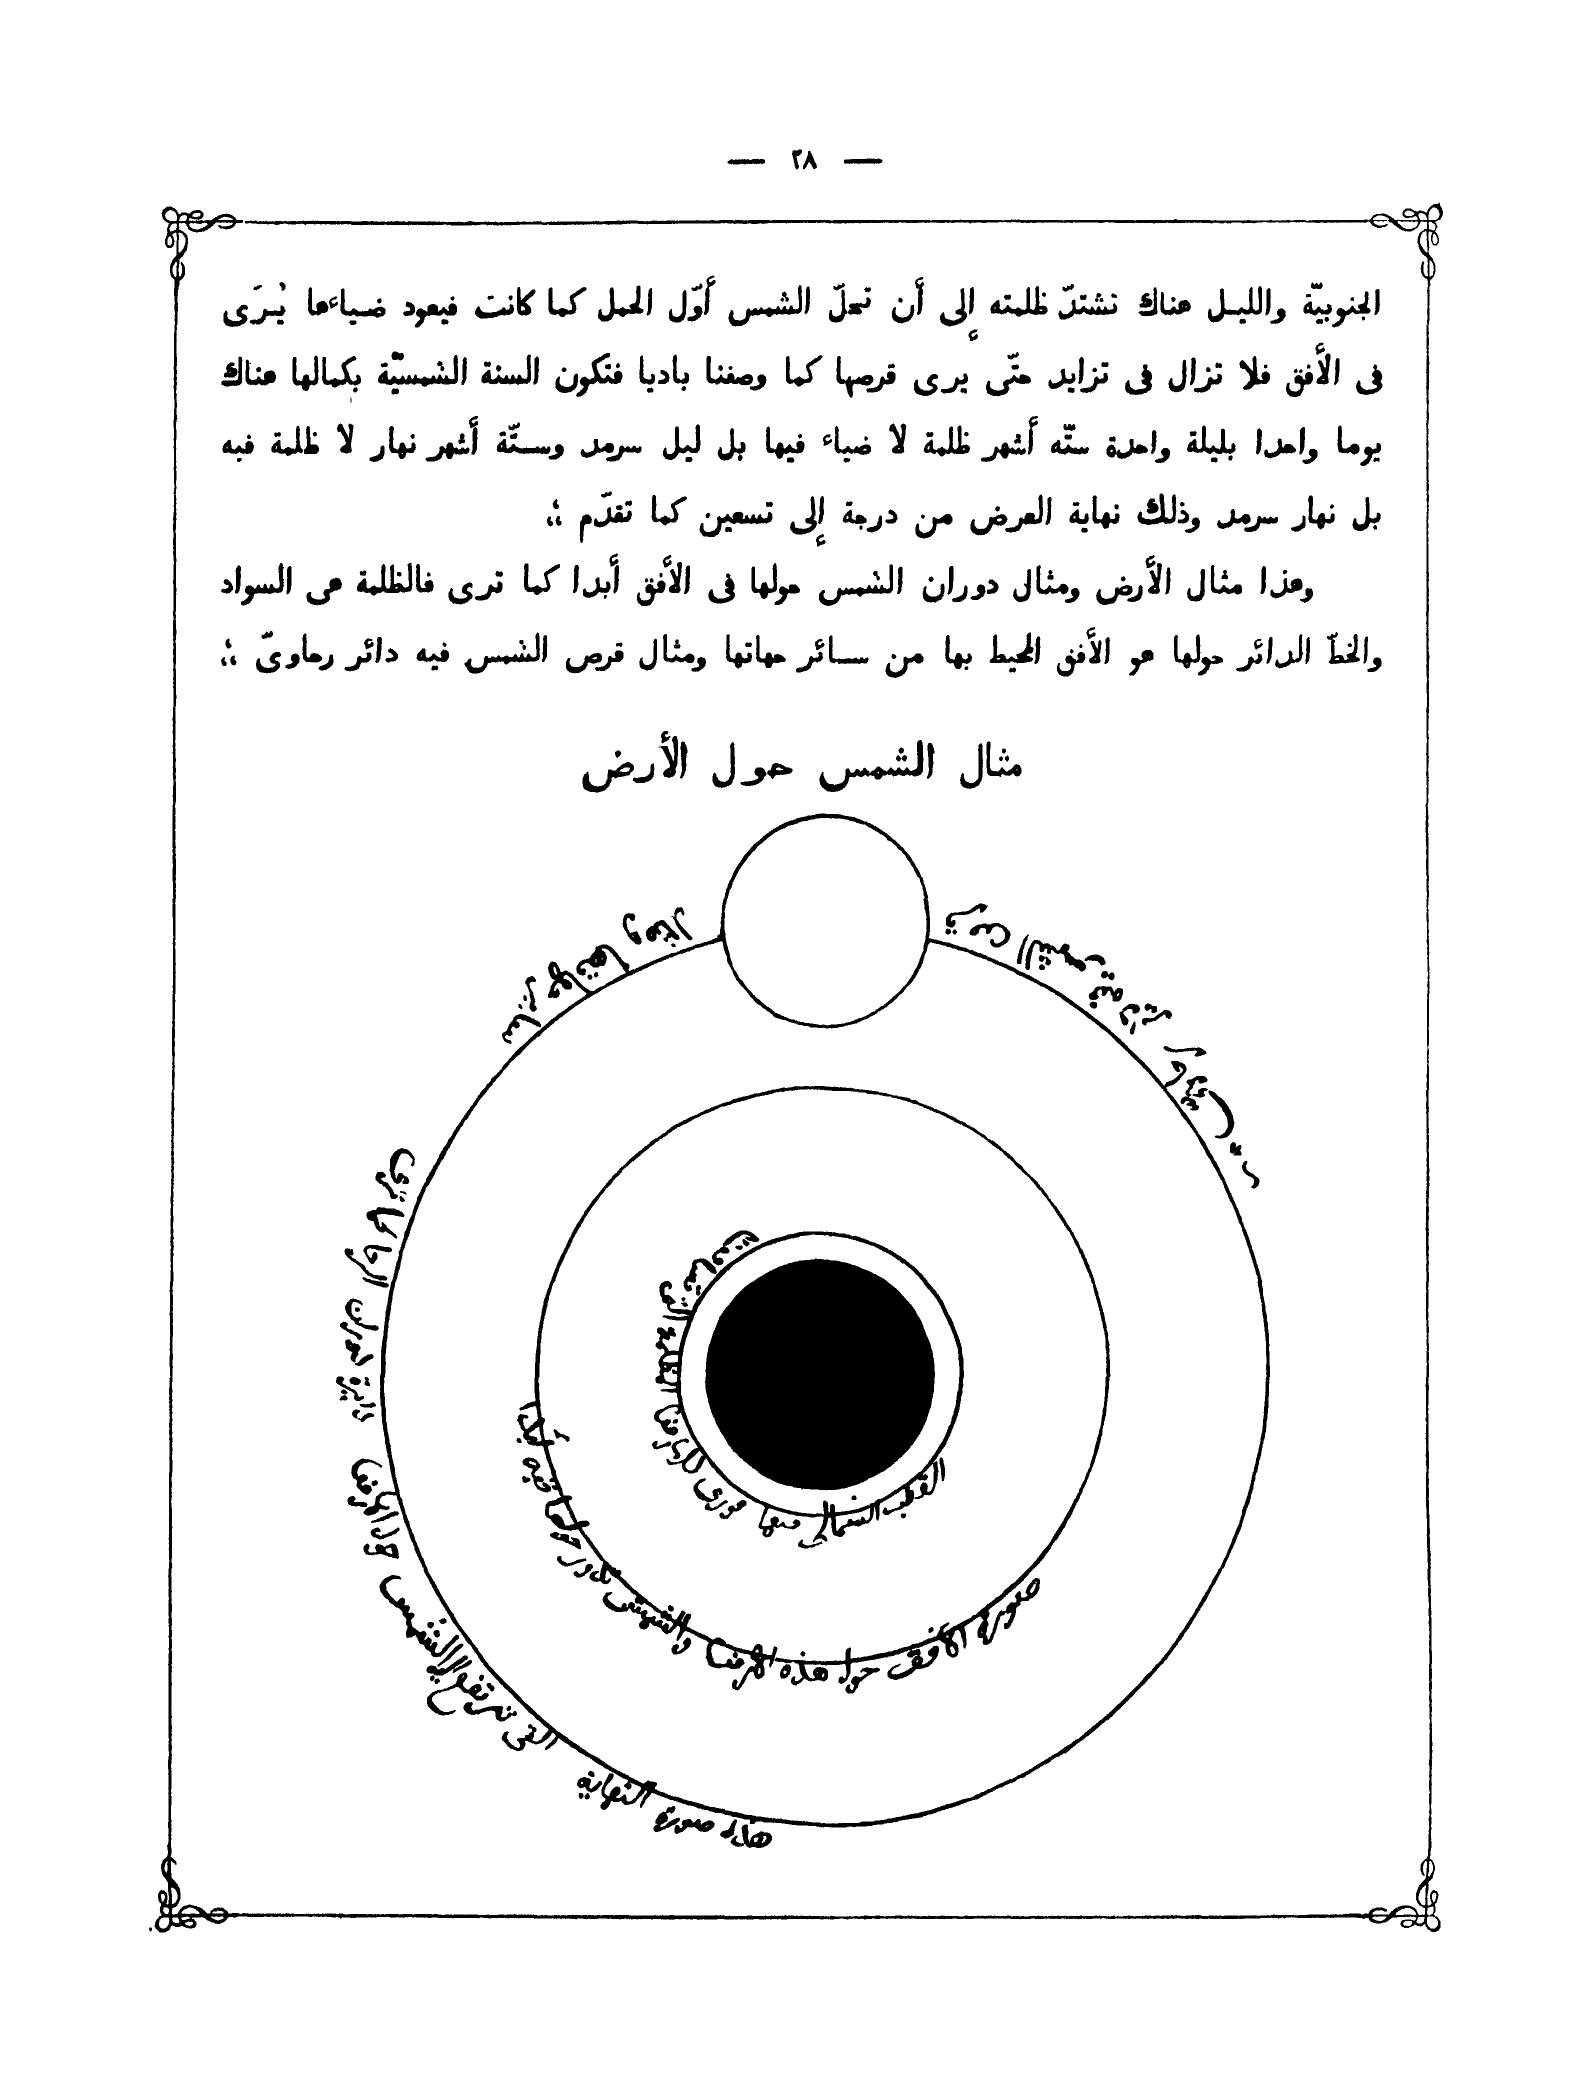 — ٢٨ —
الجنوبيّة والليل هناك تشتدّ ظلمته إلى أن تحلّ الشمس أوّل الحمل كما كانت فيعود ضياءها يُرَى
فى الأفق فلا تزال فى تزايد حتّى يرى قرصها كما وصفنا باديا فتكون السنة الشمسيّة بكمالها هناك
يوما واحدا بليلة واحدة ستّه أشهر ظلمة لا ضياء فيها بل ليل سرمد وستّة أشهر نهار لا ظلمة فيه
بل نهار سرمد وذلك نهاية العرض من درجة إلى تسعين كما تقدّم ؛
وهذا مثال الأرض ومثال دوران الشمس حولها فى الأفق أبدا كما ترى فالظلمة هى السواد
والخطّ الدائر حولها هو الأفق المحيط بها من سائر جهاتها ومثال قرص الشمس فيه دائر رحاوىّ ؛
مثال الشمس حول الأرض
سائر جهاتها ومثال
قرص الشمس فيه دائر
هذه صورة النهاية التى ترتفع إليها الشمس حول الأرض دائرة كدوران الرحا كما ترى
صورة الأفق حول هذه الأرض والشمس تدور حولها فيه أبدا
القطب الشمالى منها